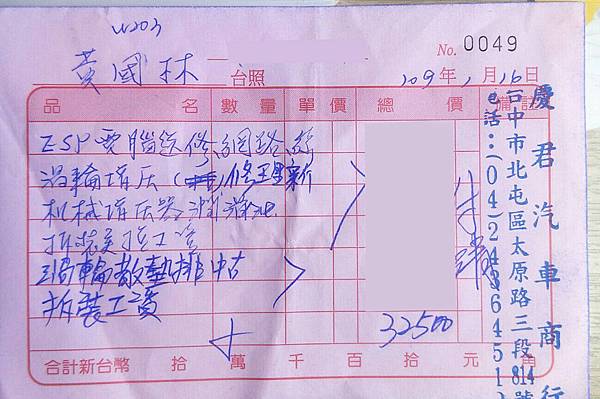 W203
No. 0049
黃國林 台照 109年1月16日
品名 數量 單價 總價 備註
ESP電腦送修,網路線
渦輪增压 ( )修理新
机械增压器
拆裝 工資
渦輪散熱排 中古
拆裝工資
32500
合計新台幣 拾 萬 千 百 拾 元 角
慶君汽車商行
台中市北屯區太原路三段814號
電話:(04)24364512